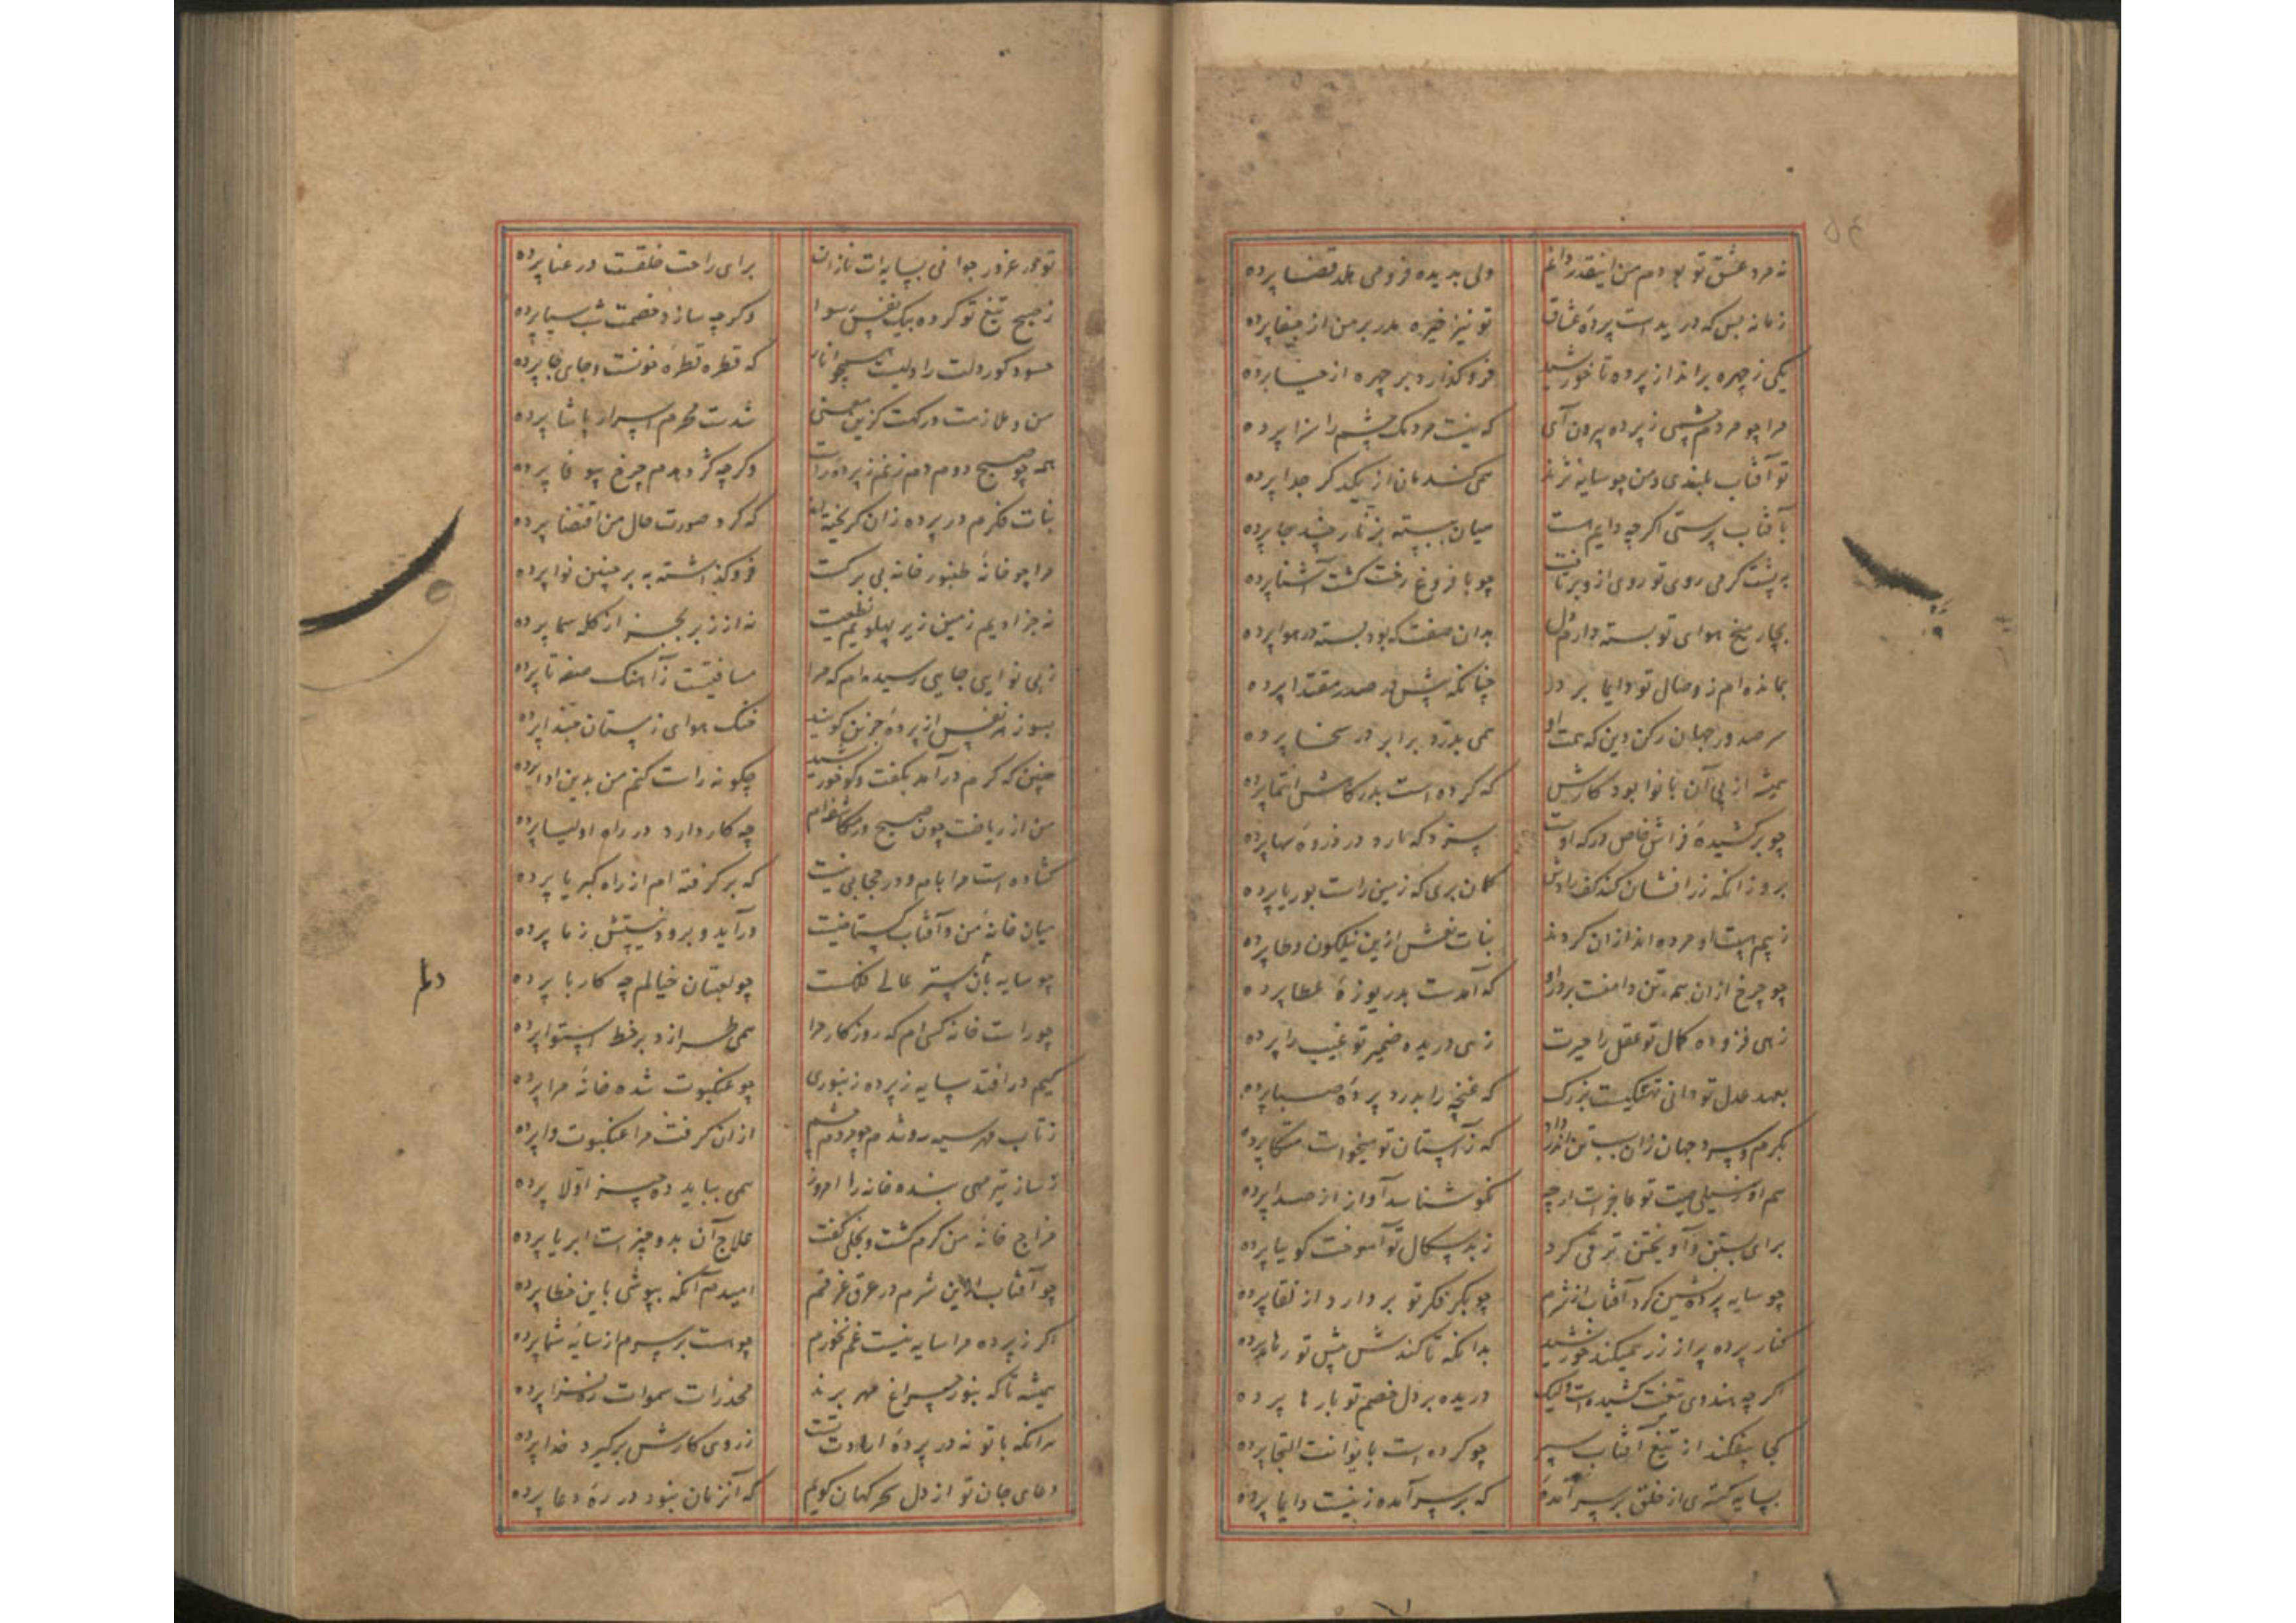 نه مرد عشق تو بودم من اینقدر دانم ولی بدیده فرومی هلد قضا پرده
زمانه بس که دریدست پردۀ عشاق تو نیز خیره مدر بر من از جفا پرده
یکی ز چهره برانداز پرده تا خورشید فروگذارد بر چهره از حیا پرده
مرا چو مردم چشمی ز پرده بیرون آی که نیست مردمک چشم را سزا پرده
تو آفتاب بلندی و من چو سایه نژند همی کشدمان از یکدگر جدا پرده
بآفتاب پرستی اگرچه دایم هست میان ببسته بزنار چند جا پرده
به پشت گرمی روی تو روی ازو برتافت چو با فروغ رخت گشت آشنا پرده
بچار میخ هوای تو بسته دارم دل بدان صفت که بود بسته در هوا پرده
بمانده ام ز وصال تو دایما بر در چنانکه پیش در صدر مقتدا پرده
سر صدور جهان رکن دین که همت او همی بدرد برابر در سخا پرده
همیشه از پی آن بانوا بود کارش که کرده است بدرگاهش التجا پرده
چو برکشیدۀ فراش خاص درگه اوست سزد که سارد در ذروۀ سها پرده
بروز آنکه زر افشان کند کف رادش گمان بری که زمین راست بوریا پرده
ز بیم هیبت او مرده اند از آن کردند بنات نعش ازین نیلگون وطا پرده
چو چرخ از آن همه تن دامنست بر در او که آمدست بدریوزۀ عطا پرده
زهی فزوده کمال تو عقل را حیرت زهی دریده ضمیر تو غیب را پرده
بعهد عدل تو دانی تهتکیست بزرگ که غنچه را بدرد پردۀ صبا پرده
بگرم و سرد جهان زان سبب تن اندر داد که ز آستان تو میخواست متکا پرده
هم او ز سیلی هیبت تو عاجزست ارچه نکو شناسد آواز از صدا پرده
برای بستن و آویختن ترقی کرد ز بدسگال تو آموخت گوییا پرده
چو سایه پرده نشین کرد آفتاب از شرم چو بکر فکر تو بردارد از لقا پرده
کنار پرده پر از زر همیکند خورشید بدانکه تا کندش پیش تو رها پرده
اگرچه هندوی تیغت کشیده است ولیک دریده بر دل خصم تو بارها پرده
کجا بیفکند از تیغ آفتاب سپر چو کرده است بایوانت التجا پرده
بسایه گستری از خلق بر سر آمدۀ که بر سر آمده زینست دایما پرده
تو مجد غرور جوانی بسایه ات نازان برای راحت خلقست در عنا پرده
ز صبح تیغ تو کرده بیک نفس رسوا وگرچه سازد خصمت شب سیا پرده
حسود کوردلت را دلیست همچو انار که قطره قطره خونست و جای جا پرده
من و ملازمت درگهت کزین معنی شدست محرم اسرار پاشا پرده
همه چو صبح دوم دم زنم ز پردۀ راست وگرچه کژ دهدم چرخ بیوفا پرده
بنات فکرم در پرده زان گریخته اند که کرد صورت حال من اقتضا پرده
مرا چو خانۀ طنبور خانه بی برگست فروگذاشته به بر چنین نوا پرده
نه جز ادیم زمین زیر پهلویم نطعیست نه از زبر بجز از کلۀ سما پرده
ز بی نوایی جایی رسیده ام که مرا مسافتیست ز آهنگ صفه تا پرده
بسوز هر نفس از پردۀ حزین گویند خنک هوای زمستان حبذا پرده
چنین که گرم درآمد بگفت وگو خورشید چگونه راست کنم من بدین ادا پرده
من از ریاضت چون صبح در مکاشفه ام چه کار دارد در راه اولیا پرده
گشاده است مرا بام و در حجابی نیست که برگرفته ام از راه کبریا پرده
میان خانۀ من و آفتاب گستاخیست درآید و برود نیستش ز ما پرده
چو سایه بان بستر عالی فلکست چو لعبتان خیالم چه کار با پرده
چو راست خانه کسی ام که روزگار مرا همی طرازد بر خط استوا پرده
گیم در افتد سایه ز پرده زنبوری چو عنکبوت شده خانۀ مرا پرده
ز تاب مهر سیه روشدم چو مردم چشم از آن گرفت مرا عنکبوت وا پرده
ز ساز تیر مهی بنده خانه را امروز همی بباید ده چیز اولا پرده
مزاج خانۀ من گرم گشت و بخلی گفت علاج آن بدو چیزست ابر یا پرده
چو آفتاب ازین شرم در عرق غرقم امیدم آنکه بپوشی باین خطا پرده
اگر ز پرده مرا سایه نیست غم نخورم چو هست بر سرم از سایۀ شما پرده
همیشه تا که بنور چراغ مهر برند مخدرات سموات روشنرا پرده
هر آنکه با تو نه در پردۀ ارادت تست ز روی کارش برگیرد خدا پرده
دعای جان تو از دل سحرگهان گویم که آن زمان نبود در ره دعا پرده